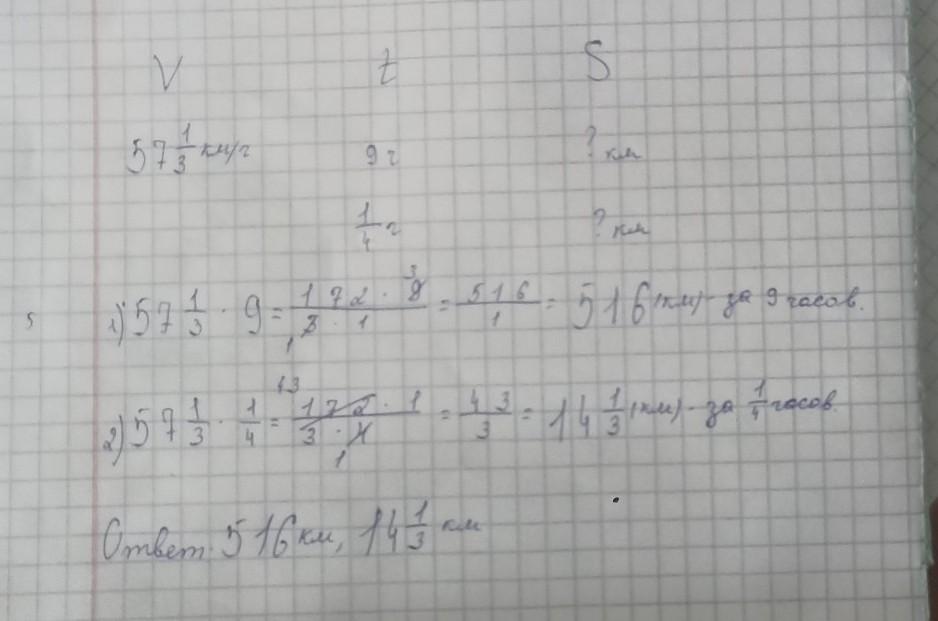 V t S
57 1/3 км/ч 9 ч ? км
1/4 ч ? км
1) 57 1/3 · 9 = 172 · 9/3 · 1 = 516/1 = 516 (км) - за 9 часов.
2) 57 1/3 · 1/4 = 172 · 1/3 · 4 = 43/3 = 14 1/3 (км) - за 1/4 часов.
Ответ: 516 км, 14 1/3 км